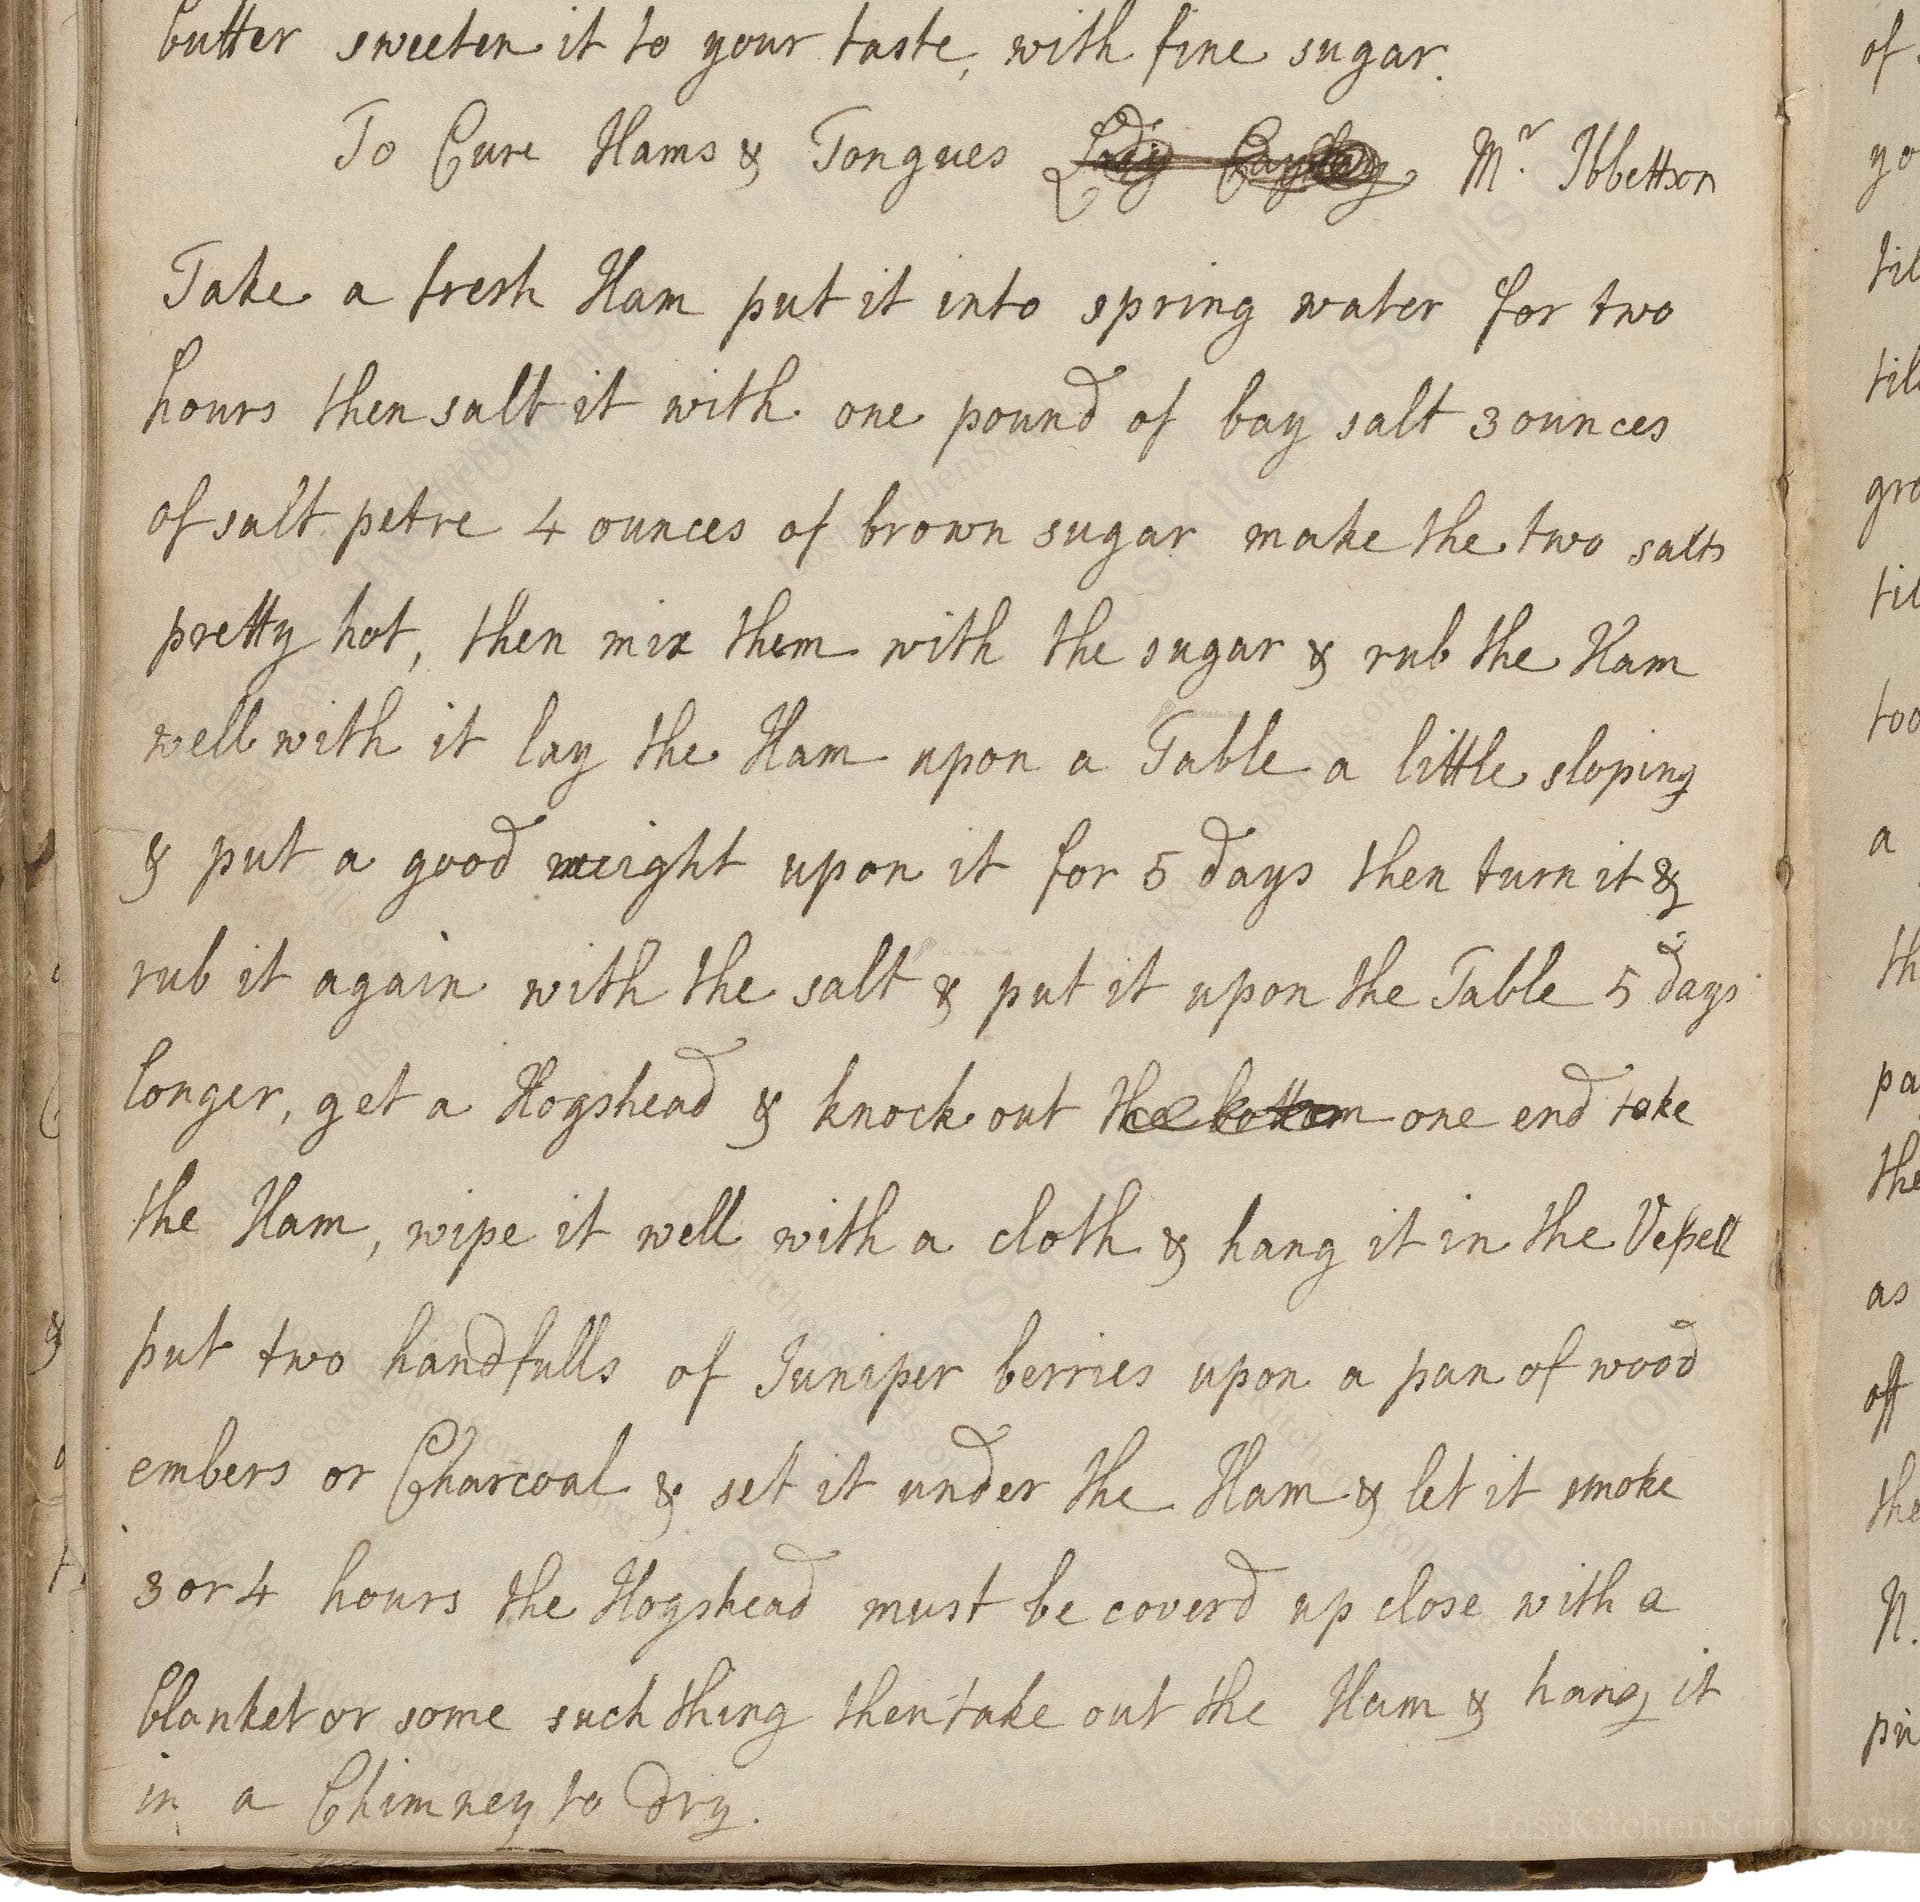 butter sweeten it to your taste, with fine sugar.
To Cure Hams & Tongues Lady Cayley Mr. Ibbettson
Take a fresh Ham put it into spring water for two
hours then salt it with one pound of bay salt 3 ounces
of salt petre 4 ounces of brown sugar make the two salts
pretty hot, then mix them with the sugar & rub the Ham
well with it lay the Ham upon a Table a little sloping
& put a good weight upon it for 5 days then turn it &
rub it again with the salt & put it upon the Table 5 days
longer, get a Hogshead & knock out the bottom one end take
the Ham, wipe it well with a cloth & hang it in the Veſsell
put two handfulls of Juniper berries upon a pan of wood
embers or Charcoal & set it under the Ham & let it smoke
3 or 4 hours the Hogshead must be coverd up close with a
blanket or some such thing then take out the Ham & hang it
in a Chimney to dry.
LostKitchenScrolls.org